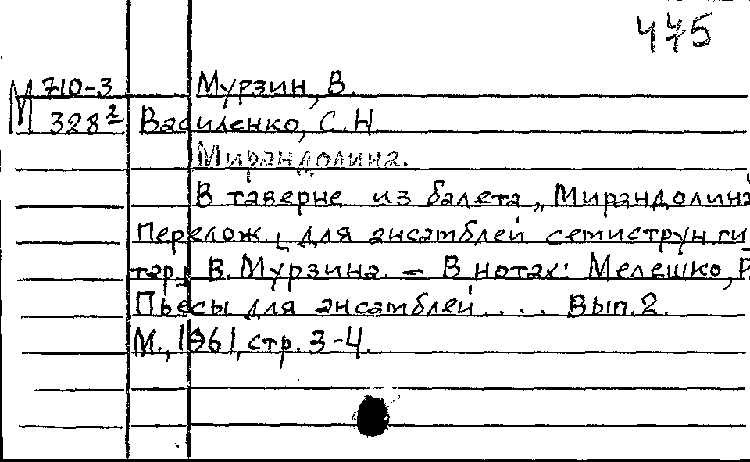 475
М 710-3 Мурзин, В.
328² Василенко, С.Н.
Мирандолина.
В таверне из балета „Мирандолина
Перелож. для ансамблей семиструн. ги-
тар В. Мурзина. — В нотах: Мелешко, В.
Пьесы для ансамблей . . . Вып. 2.
М., 1961, стр. 3-4.